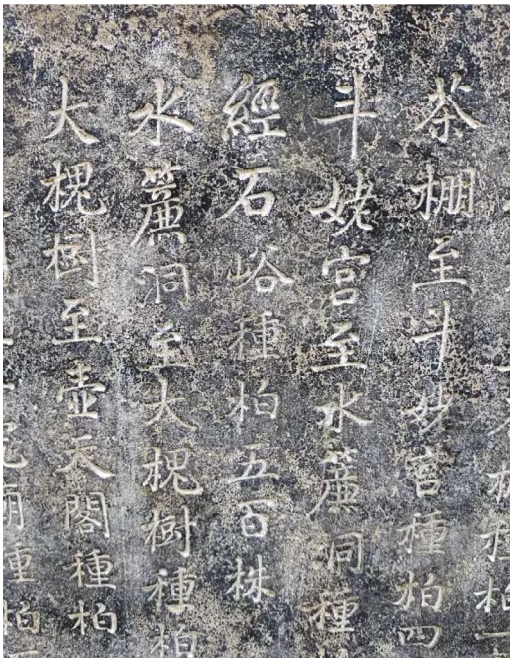 種柏一
茶棚至斗姥宮種柏四
斗姥宮至水簾洞種
經石峪種柏五百株
水簾洞至大槐樹種柏
大槐樹至壺天閣種柏
種柏